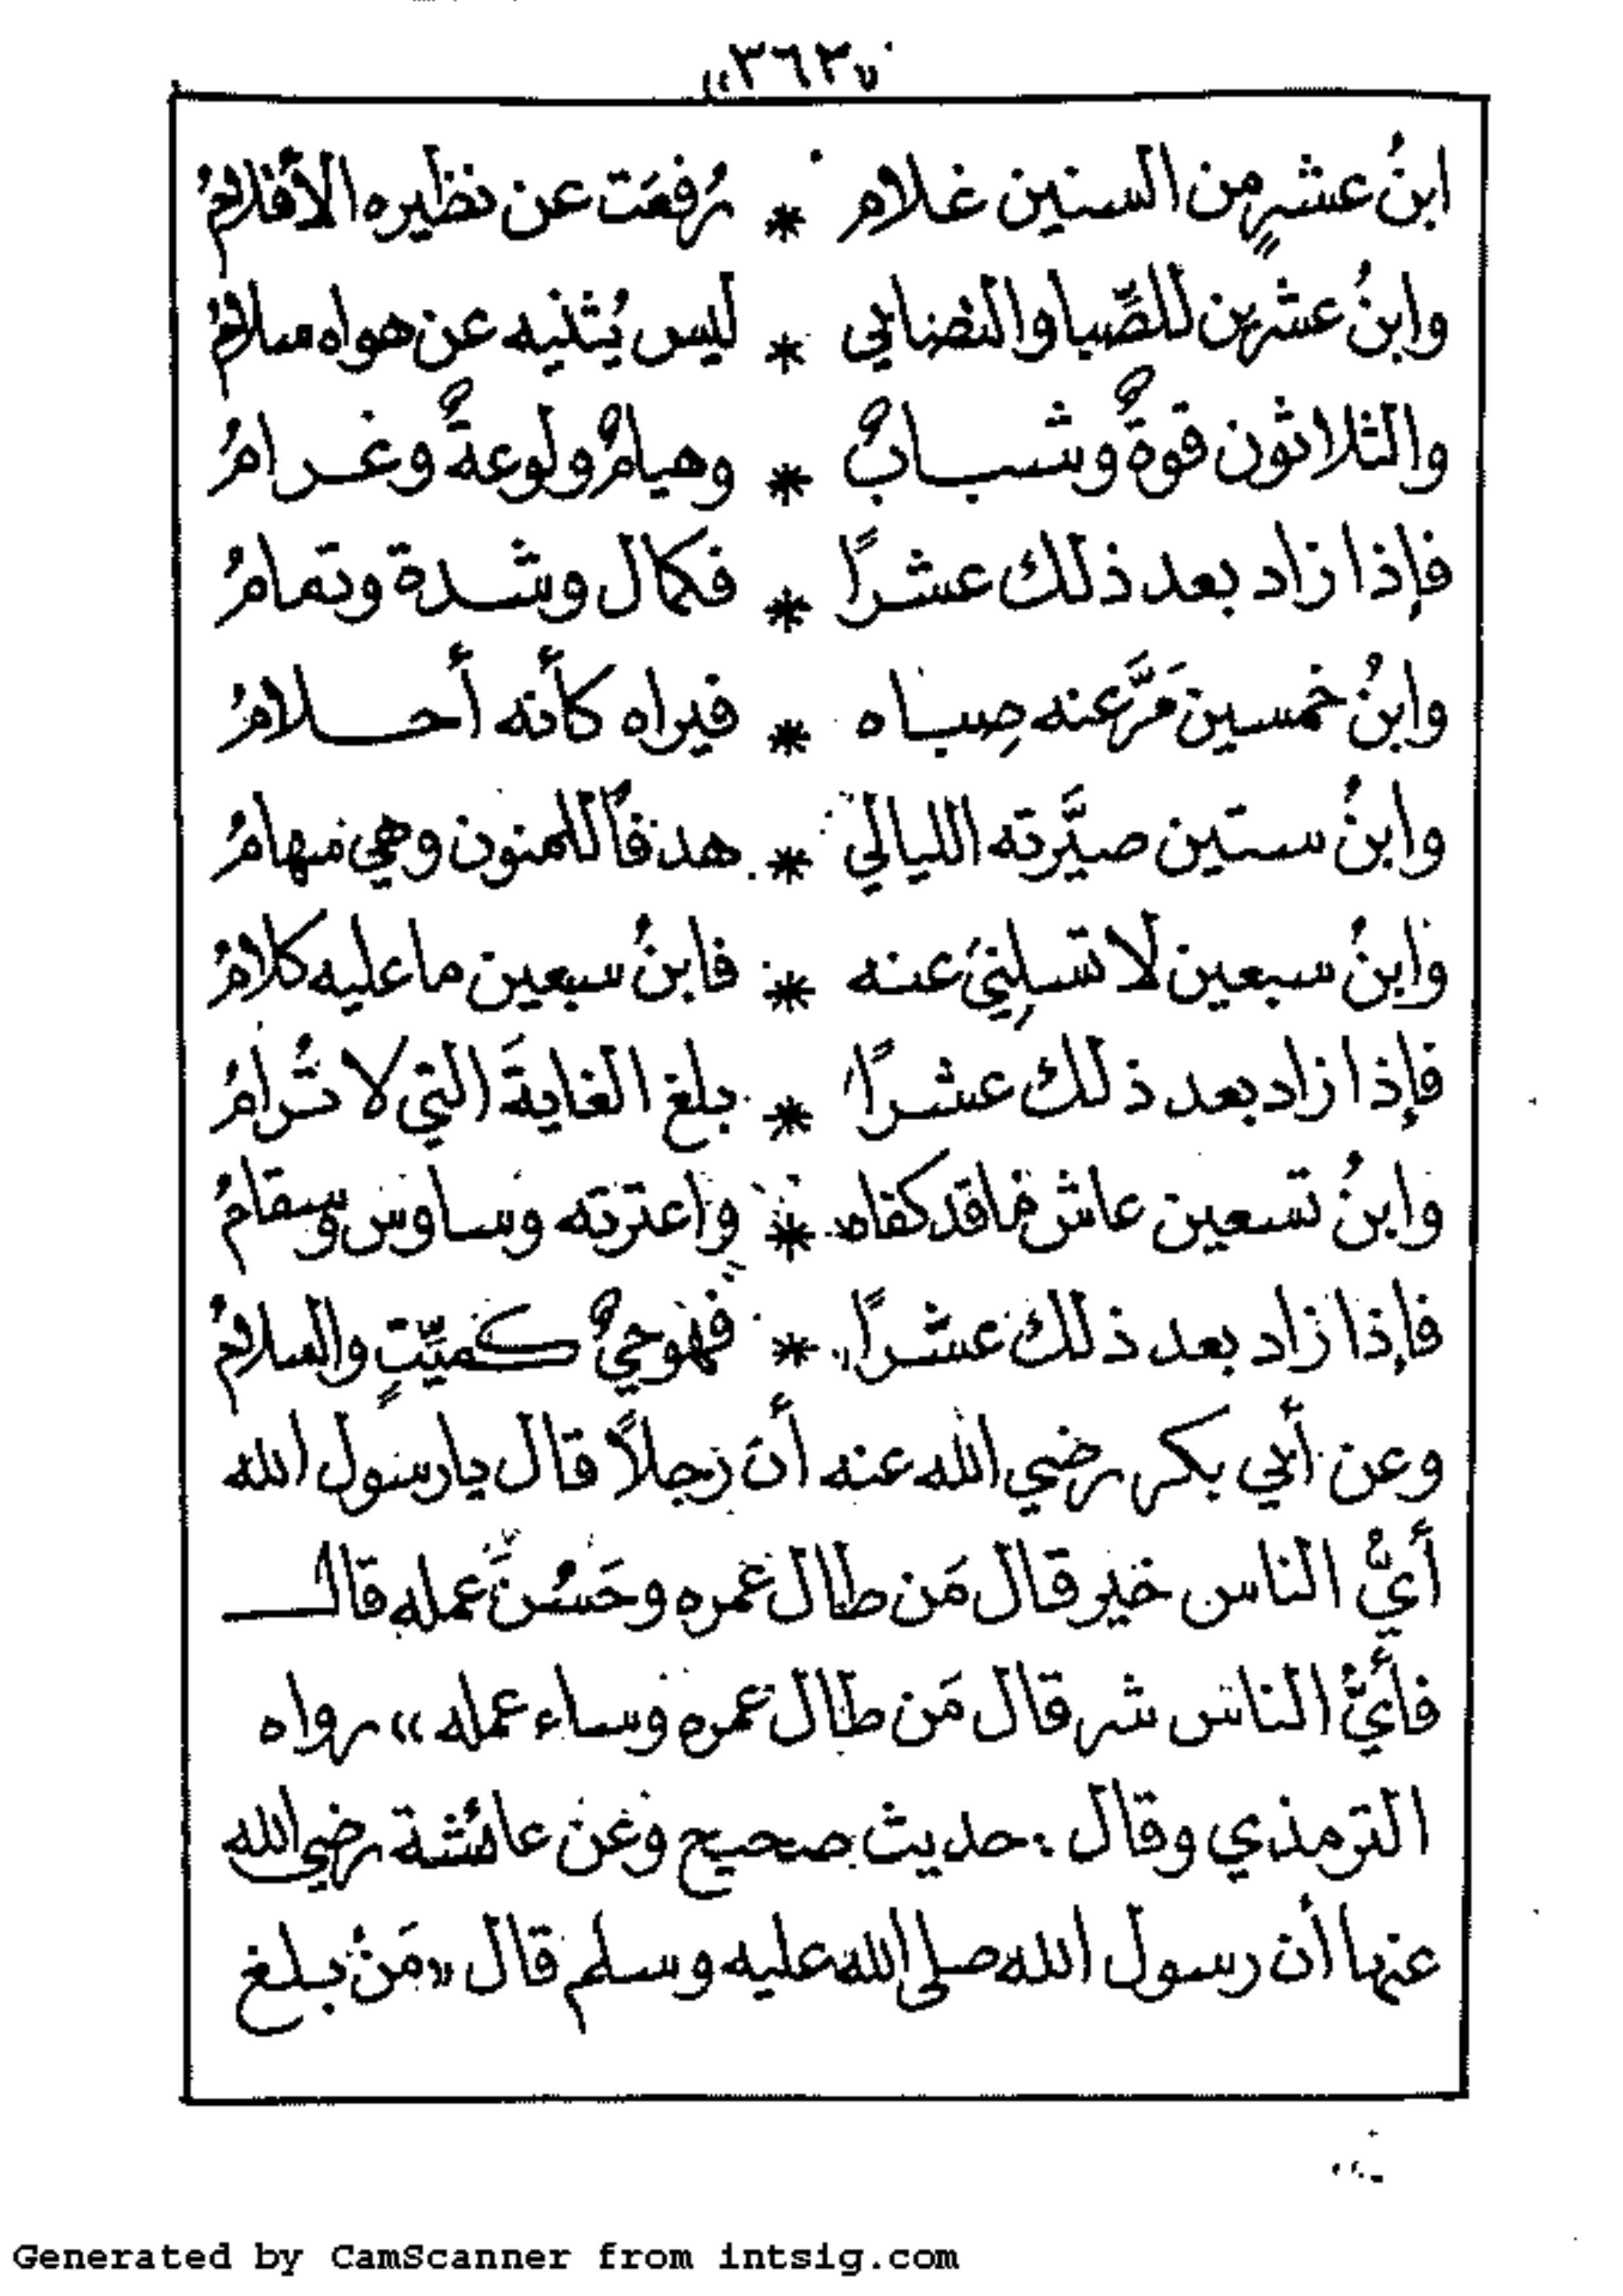 «٣٦٣»
ابنُ عشرٍ من السنين غلام * رُفعَت عن نظيره الأقلامُ
وابنُ عشرين للصِّبا والتصابي * ليس يُثنيه عن هواه ملامُ
والثلاثون قوةٌ وشبابٌ * وهيامٌ ولوعةٌ وغرامُ
فإذا زاد بعد ذلك عشرًا * فكمال وشدة وتمامُ
وابنُ خمسين مَرَّ عنه صِباه * فيراه كأنه أحلامُ
وابنُ ستين صيَّرته الليالي * هدفاً للمنون وهي سهامُ
وابنُ سبعين لا تسلِني عنه * فابنُ سبعين ما عليه كلامُ
فإذا زاد بعد ذلك عشرًا * بلغ الغايةَ التي لا تُرامُ
وابنُ تسعين عاش ما قد كفاه * واعترته وساوس وسقامُ
فإذا زاد بعد ذلك عشرًا * فهو حيٌ كميِّتٍ والسلامُ
وعن أبي بكر رضي الله عنه أن رجلاً قال يا رسول الله
أيُّ الناس خير قال مَن طال عمره وحَسُنَ عمله قال
فأيُّ الناس شر قال مَن طال عمره وساء عمله» رواه
الترمذي وقال: حديث صحيح وعن عائشة رضي الله
عنها أن رسول الله صلى الله عليه وسلم قال «مَنْ بلغ
Generated by CamScanner from intsig.com